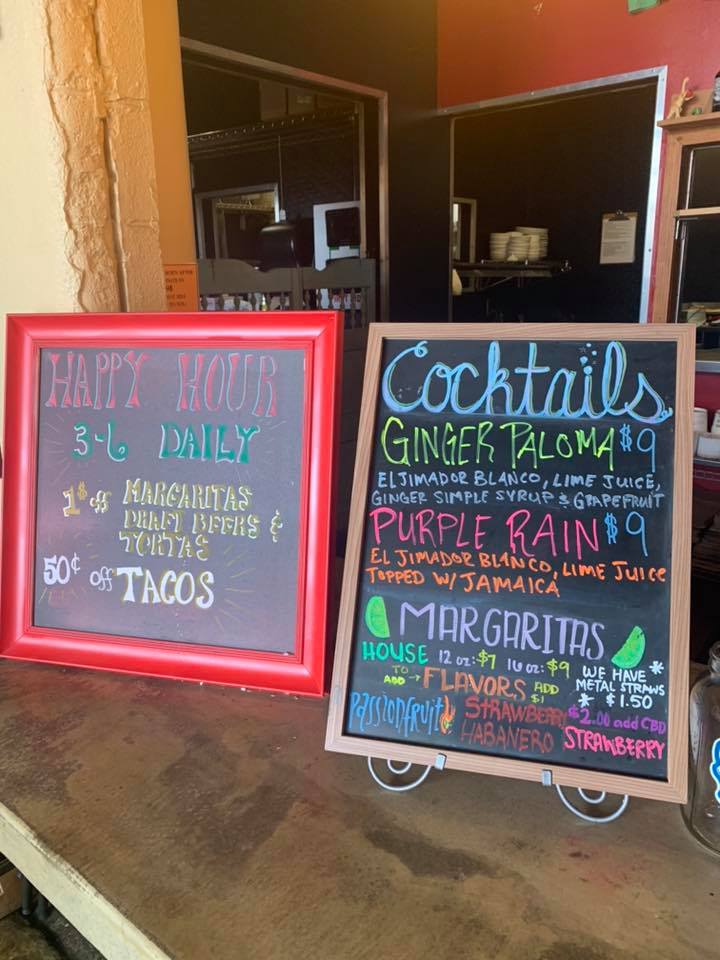 HAPPY HOUR
3-6 DAILY
1$ off MARGARITAS
DRAFT BEERS &
TORTAS
50¢ off TACOS
Cocktails
GINGER PALOMA $9
EL JIMADOR BLANCO, LIME JUICE,
GINGER SIMPLE SYRUP & GRAPEFRUIT
PURPLE RAIN $9
EL JIMADOR BLANCO, LIME JUICE
TOPPED W/ JAMAICA
MARGARITAS
HOUSE 12 oz: $7 16 oz: $9
TO ADD → FLAVORS ADD $1
PASSIONFRUIT STRAWBERRY
HABANERO STRAWBERRY
WE HAVE *
METAL STRAWS
* $1.50
$2.00 add CBD